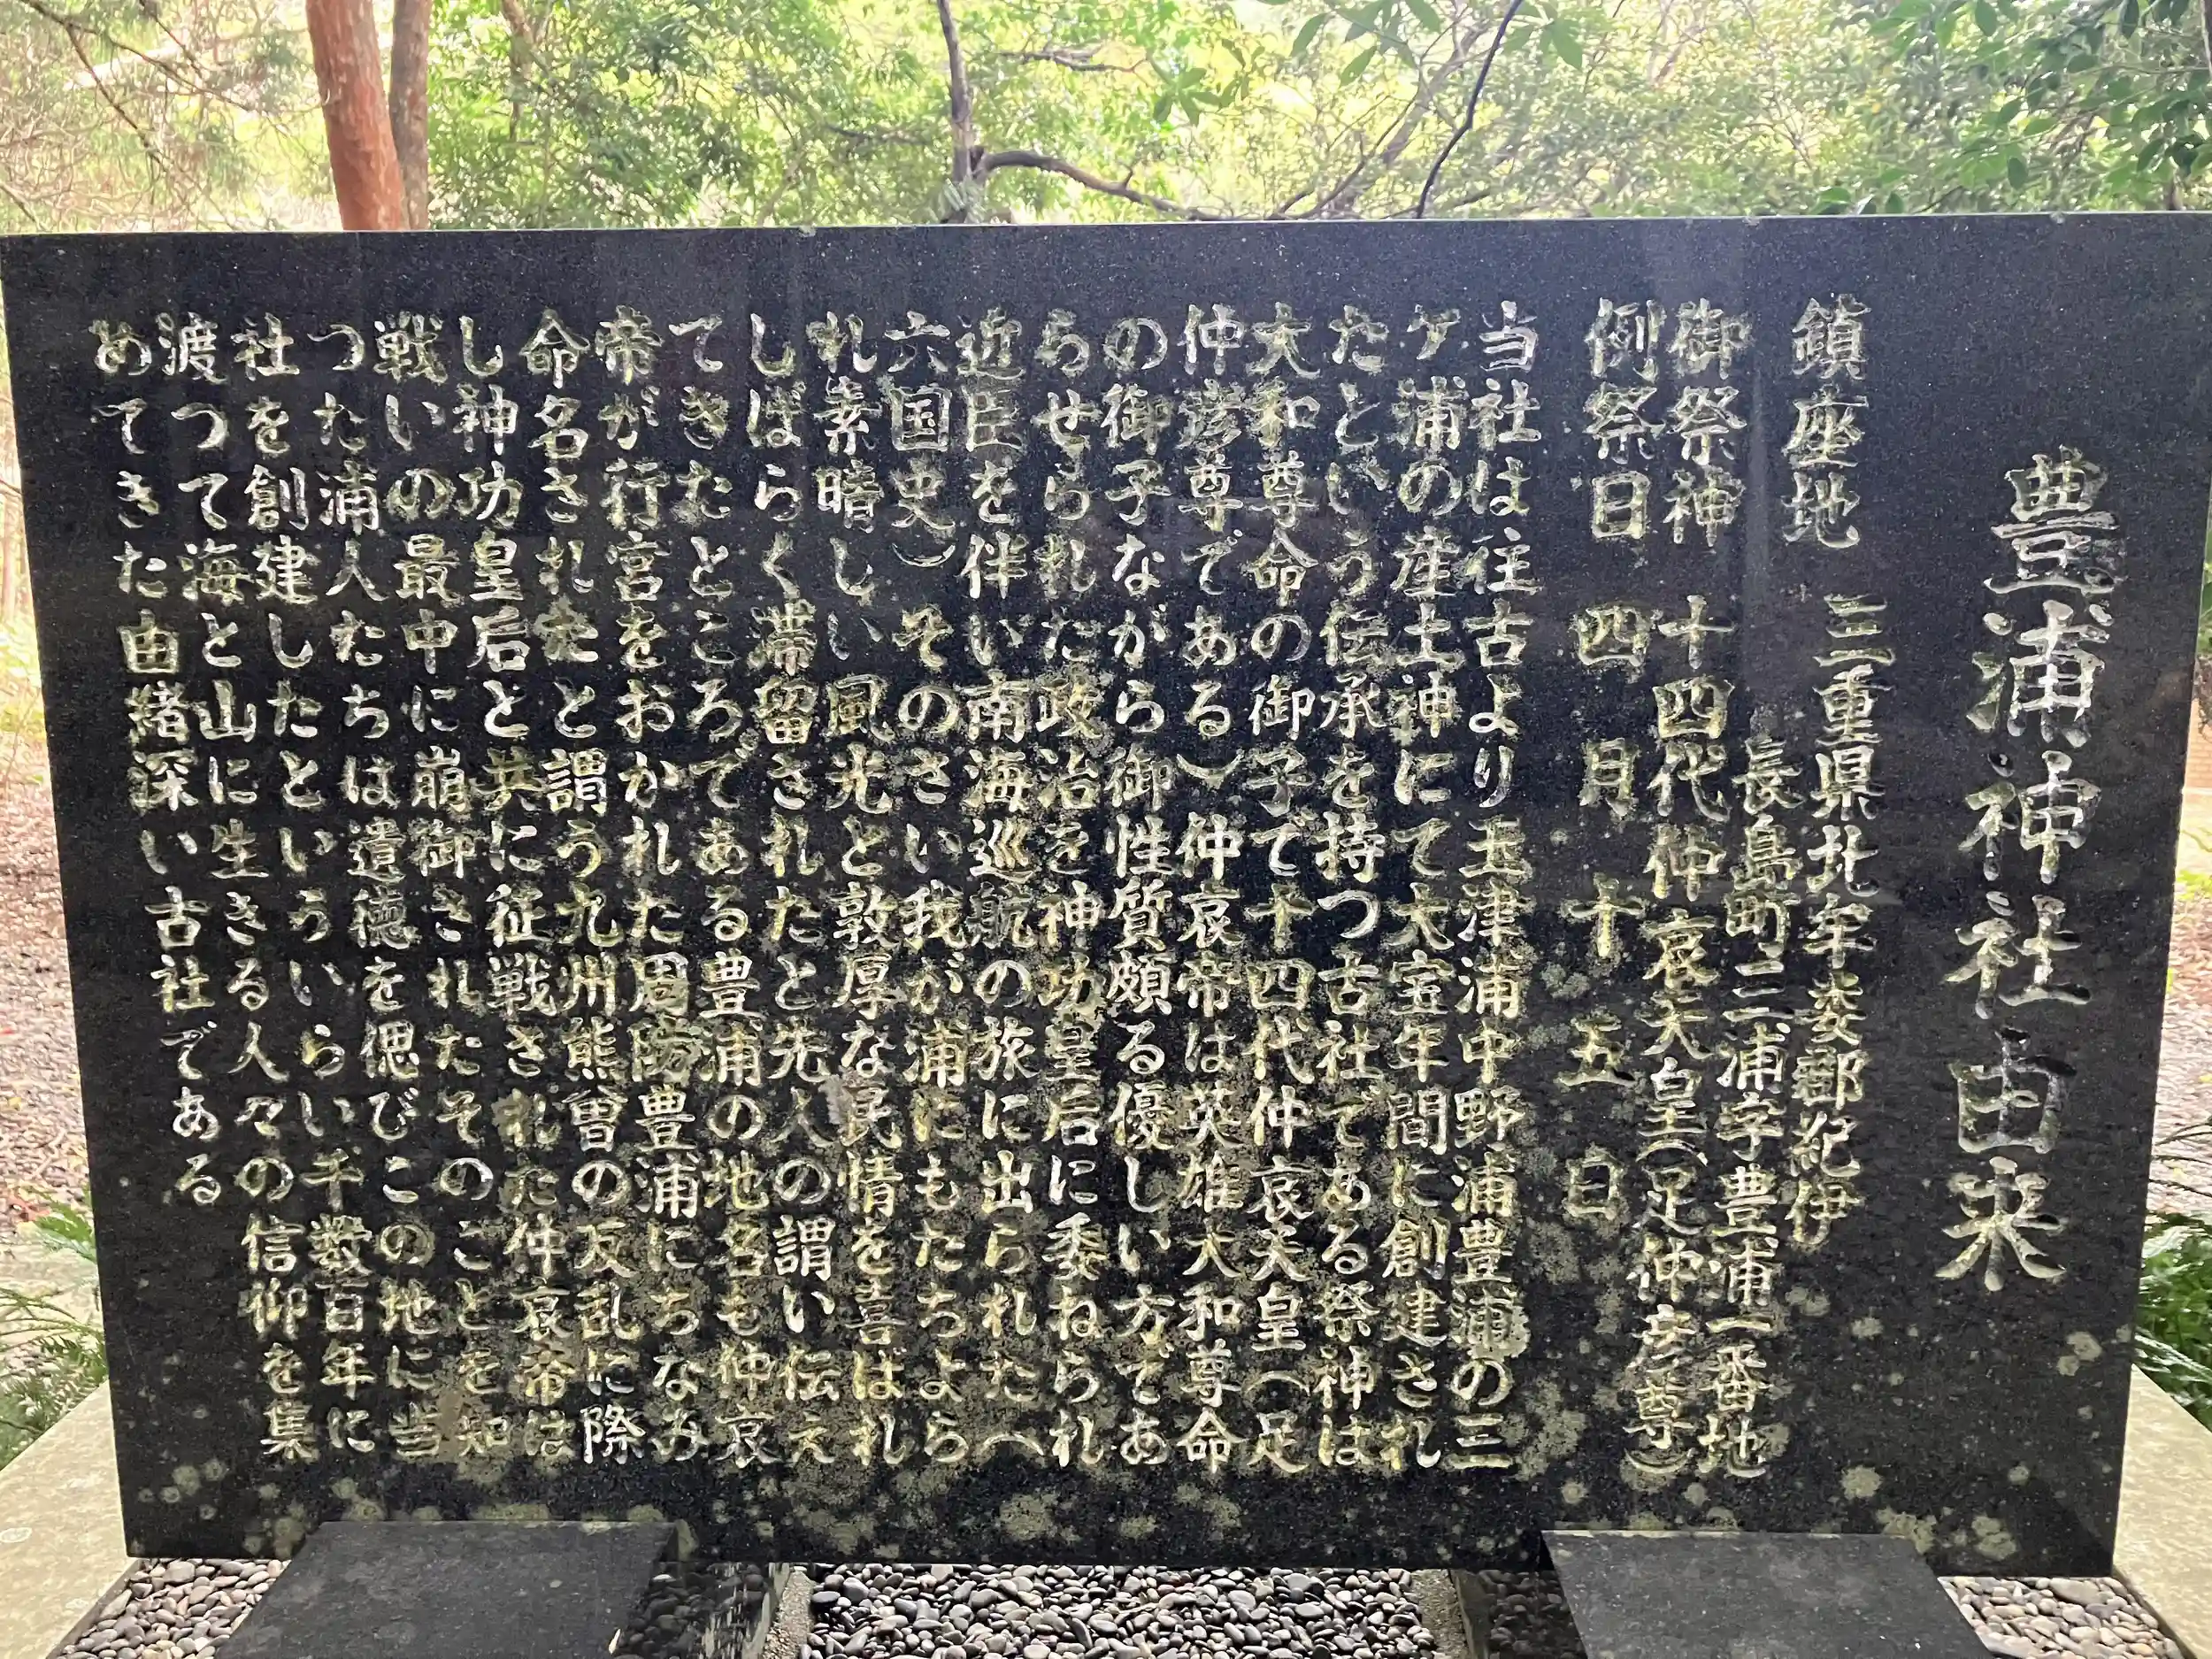 豊浦神社由来
鎮座地　三重県北牟婁郡紀伊
長島町三浦字豊浦一番地
御祭神　十四代仲哀天皇（足仲彦尊）
例祭日　四月十五日
当社は往古より玉津浦中野浦豊浦の三
ケ浦の産土神にて大宝年間に創建され
たという伝承を持つ古社である祭神は
大和尊命の御子で十四代仲哀天皇（足
仲彦尊である）仲哀帝は英雄大和尊命
の御子ながら御性質頗る優しい方であ
らせられた政治を神功皇后に委ねられ
近臣を伴い南海巡航の旅に出られた（
六国史）そのさい我が浦にもたちよら
れ素晴しい風光と敦厚な民情を喜ばれ
しばらく滞留されたと先人の謂い伝え
てきたところである豊浦の地名も仲哀
帝が行宮をおかれた周防豊浦にちなみ
命名されたと謂う九州熊曽の反乱に際
し神功皇后と共に征戦された仲哀帝は
戦いの最中に崩御されたそのことを知
つた浦人たちは遺徳を偲びこの地に当
社を創建したといういらい千数百年に
渡つて海と山に生きる人々の信仰を集
めてきた由緒深い古社である